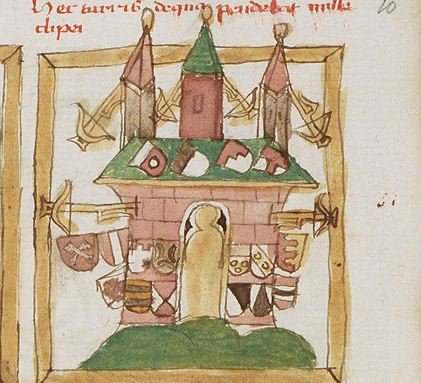 Hec turris de qua pendebat mille
clipei
10